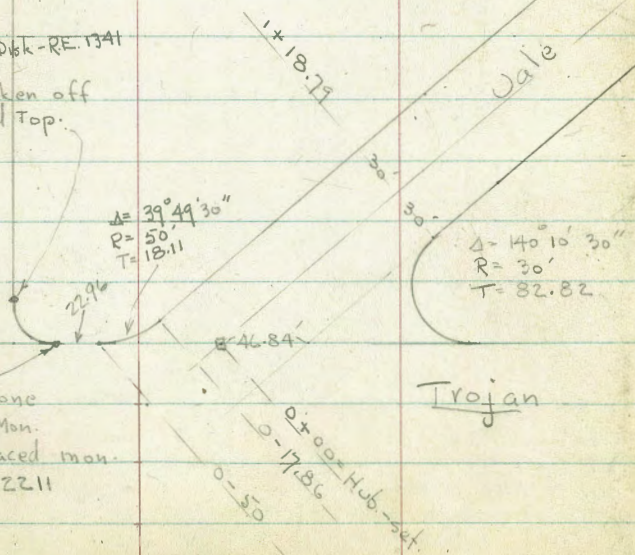 Disk - R.E. 1341
ken off
Top.
1+18.79
Vale
30-
30-
Δ= 39°49'30"
R= 50'
T= 18.11
Δ= 140°10'30"
R= 30'
T= 82.82
22.96
46.84'
Trojan
one
Mon.
aced mon.
2211
0+00= Hub-set.
0-17.86
0-50